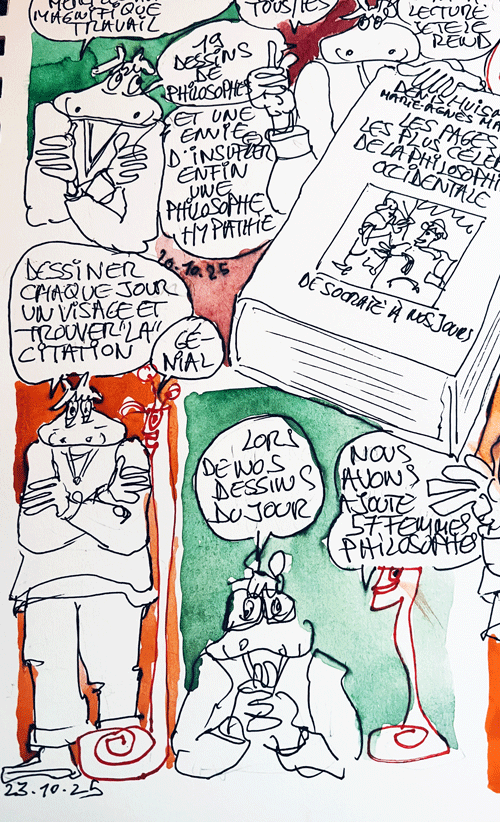 MAGNIFIQUE
TRAVAIL
TOUS/TES
LECTURE
REND
19
DESSINS
DE
PHILOSOPHES
ET UNE
ENVIE
D'INSTALLER
ENFIN
UNE
PHILOSOPHE
HYPATHIE
20.10.25
LES PAGES
LES PLUS CÉLÈ
DE LA PHILOSOPHI
OCCIDENTALE
DE SOCRATE À NOS JOURS
DESSINER
CHAQUE JOUR
UN VISAGE ET
TROUVER "LA"
CITATION
GÉ-
NIAL
LORS
DE NOS
DESSINS
DU JOUR
NOUS
AVONS
AJOUTÉ
57 FEMMES
PHILOSOPHES
23.10.25